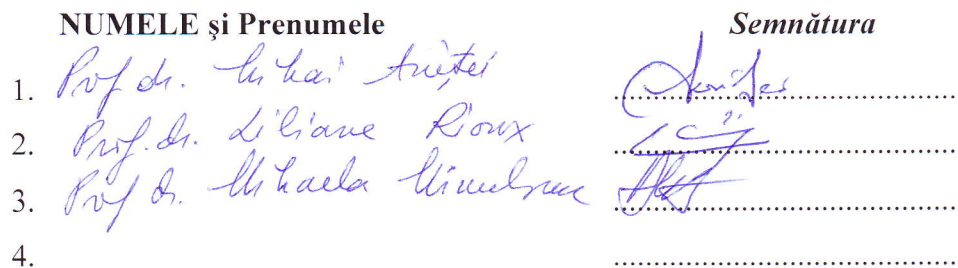 NUMELE și Prenumele Semnătura
1. Prof dr. Mihai Aniței ........................................
2. Prof. dr. Liliane Rioux ........................................
3. Prof dr. Mihaela Minulescu ........................................
4. ........................................